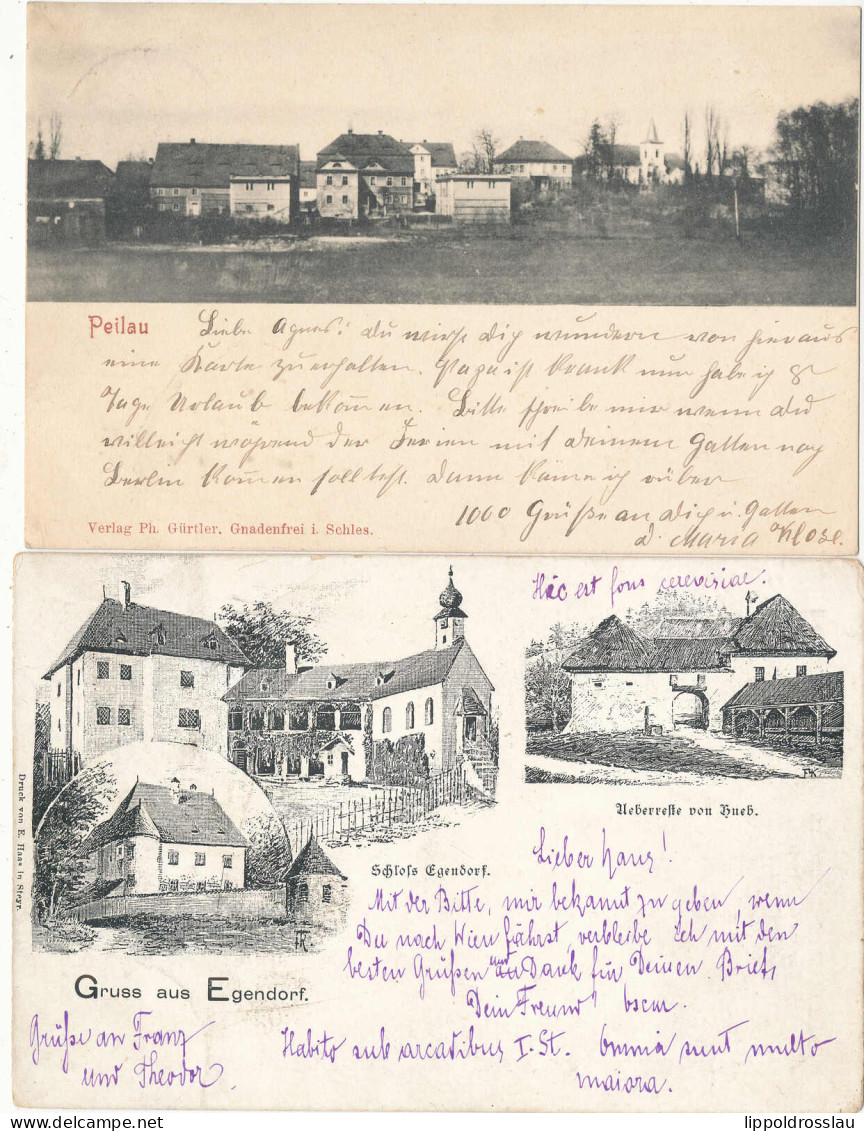 Peilau
Liebe Agnes! Du wirst Dich wundern von hieraus
eine Karte zu erhalten. ist krank nun habe ich 8
Tage Urlaub bekom̅en. Bitte schreibe mir wenn Du
villeicht während der Ferien mit Deinem Gatten nach
Berlin kom̅en solltest. Dann käme ich rüber
1000 Grüße an Dich u. Gatten
D. Maria Klose.
Verlag Ph. Gürtler, Gnadenfrei i. Schles.
Hic est fons cerevisiae.
Ueberreste von Hueb.
Schloss Egendorf.
Druck von E. Haas in Steyr.
FK
FK
Gruss aus Egendorf.
Lieber Hans!
Mit der Bitte, mir bekannt zu geben, wenn
Du nach Wien fährst, verbleibe ich mit den
besten Grüßen und Dank für Deinen Brief,
Dein Freund Oscar.
Grüße an Franz
und Theodor
Habito sub arcadibus I. St. Omnia sunt multo
maiora.
lippoldrosslau